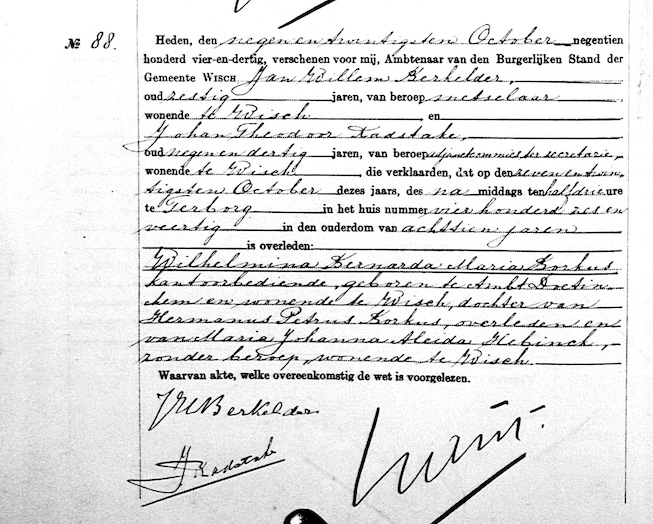 № 88.
Heden, den negen en twintigsten October negentien
honderd vier-en-dertig, verschenen voor mij, Ambtenaar van den Burgerlijken Stand der
Gemeente WISCH Jan Willem Berkelder,
oud zestig jaren, van beroep metselaar
wonende te Wisch, en
Johan Theodoor Kadstake,
oud negen en dertig jaren, van beroep adjunctcommies ter secretarie,
wonende te Wisch, die verklaarden, dat op den zeven en twin-
tigsten October dezes jaars, des na middags ten half drie ure
te Terborg in het huis nummer vier honderd zes en
veertig in den ouderdom van achttien jaren
is overleden:
Wilhelmina Bernarda Maria Borkus
kantoorbediende, geboren te Ambt Doetin-
chem en wonende te Wisch, dochter van
Hermanus Petrus Borkus, overleden en
van Maria Johanna Aleida Hebinck,
zonder beroep, wonende te Wisch.
Waarvan akte, welke overeenkomstig de wet is voorgelezen.
JW Berkelder
J Kadstake